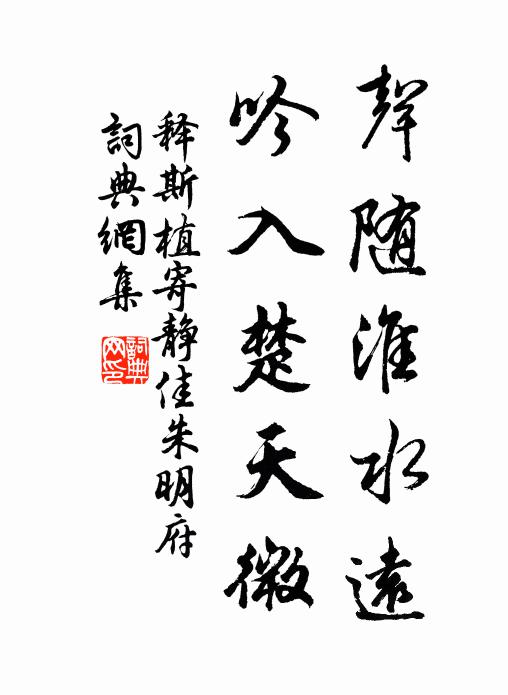 聲随淮水遠
吟入楚天微
释斯植寄静佳朱明府
詞典網集
詞典网印